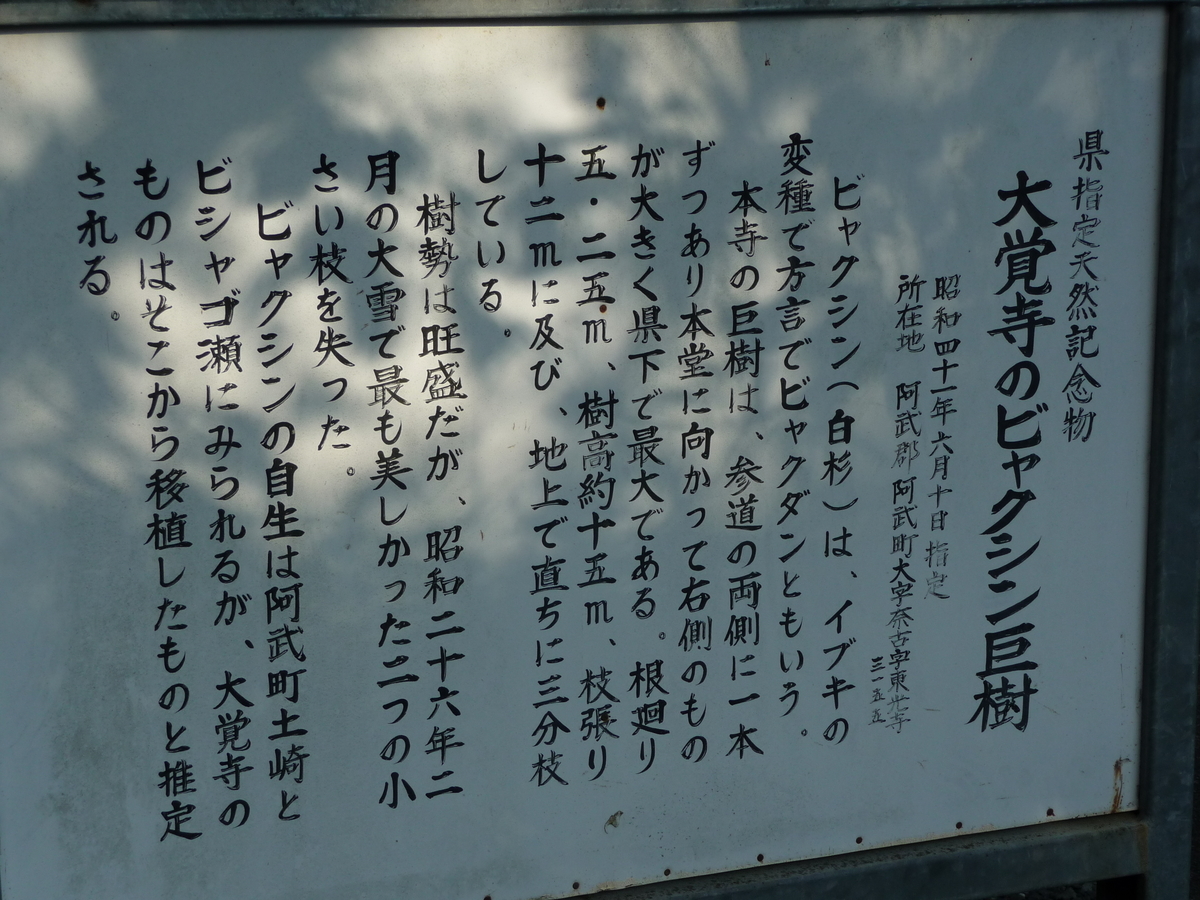 県指定天然記念物
大覚寺のビャクシン巨樹
昭和四十一年六月十日指定
所在地 阿武郡阿武町大字奈古字東光寺
三一五五
ビャクシン(白杉)は、イブキの
変種で方言でビャクダンともいう。
本寺の巨樹は、参道の両側に一本
ずつあり本堂に向かって右側のもの
が大きく県下で最大である。根廻り
五・二五m、樹高約十五m、枝張り
十二mに及び、地上で直ちに三分枝
している。
樹勢は旺盛だが、昭和二十六年二
月の大雪で最も美しかった二つの小
さい枝を失った。
ビャクシンの自生は阿武町土崎と
ビシャゴ瀬にみられるが、大覚寺の
ものはそこから移植したものと推定
される。